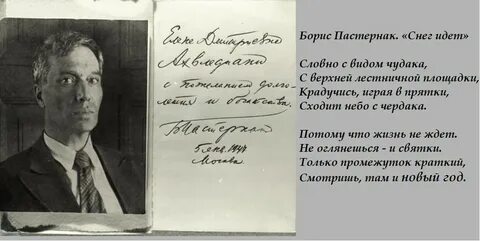 Елене Дмитриевне
Ахвледиани
с пожеланием долго-
летия и
Б Пастернак
Москва
Борис Пастернак. «Снег идет»
Словно с видом чудака,
С верхней лестничной площадки,
Крадучись, играя в прятки,
Сходит небо с чердака.
Потому что жизнь не ждет.
Не оглянешься - и святки.
Только промежуток краткий,
Смотришь, там и новый год.